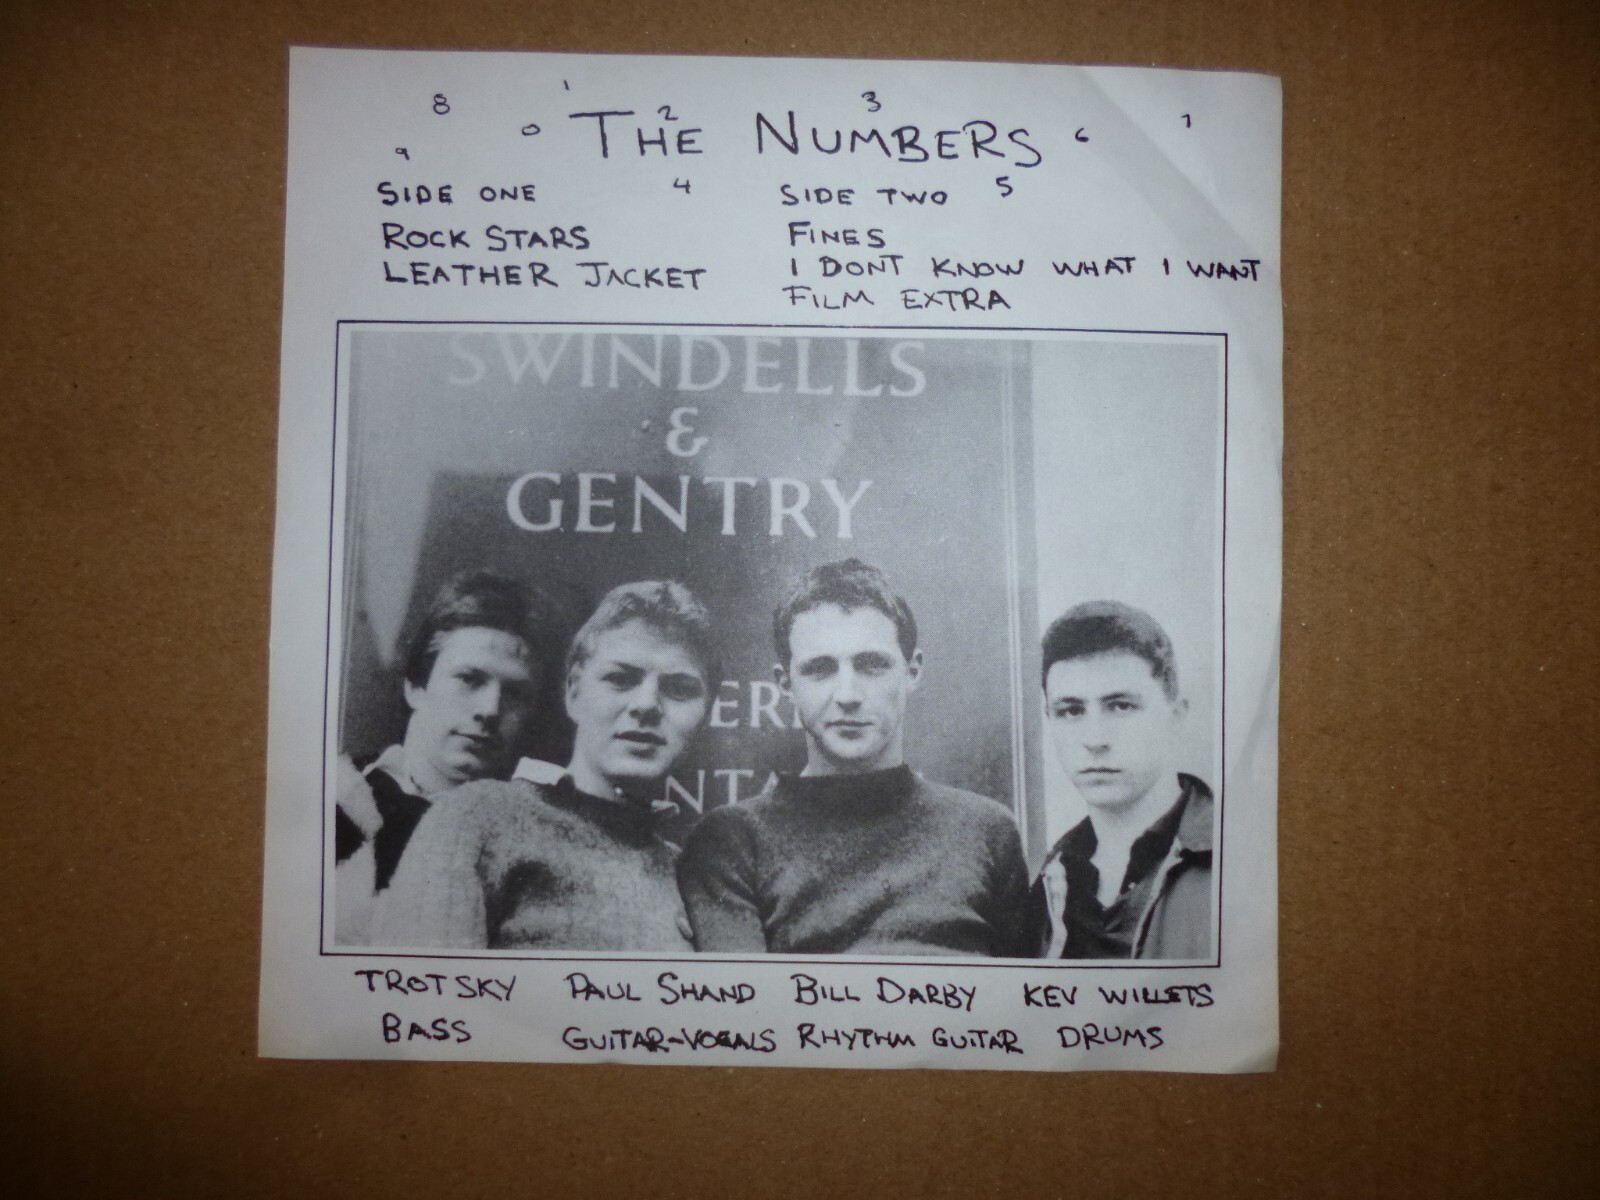 8 1 2 3
9 0 THE NUMBERS 6 7
SIDE ONE 4 SIDE TWO 5
ROCK STARS FINES
LEATHER JACKET I DONT KNOW WHAT I WANT
FILM EXTRA
SWINDELLS
&
GENTRY
ER
NTA
TROTSKY PAUL SHAND BILL DARBY KEV WILLETS
BASS GUITAR-VOCALS RHYTHM GUITAR DRUMS